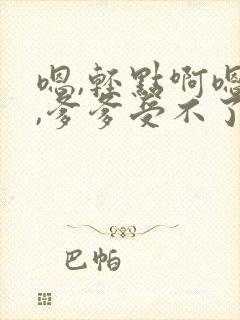 嗯,輕點啊嗯
,爹爹受不了
巴帕